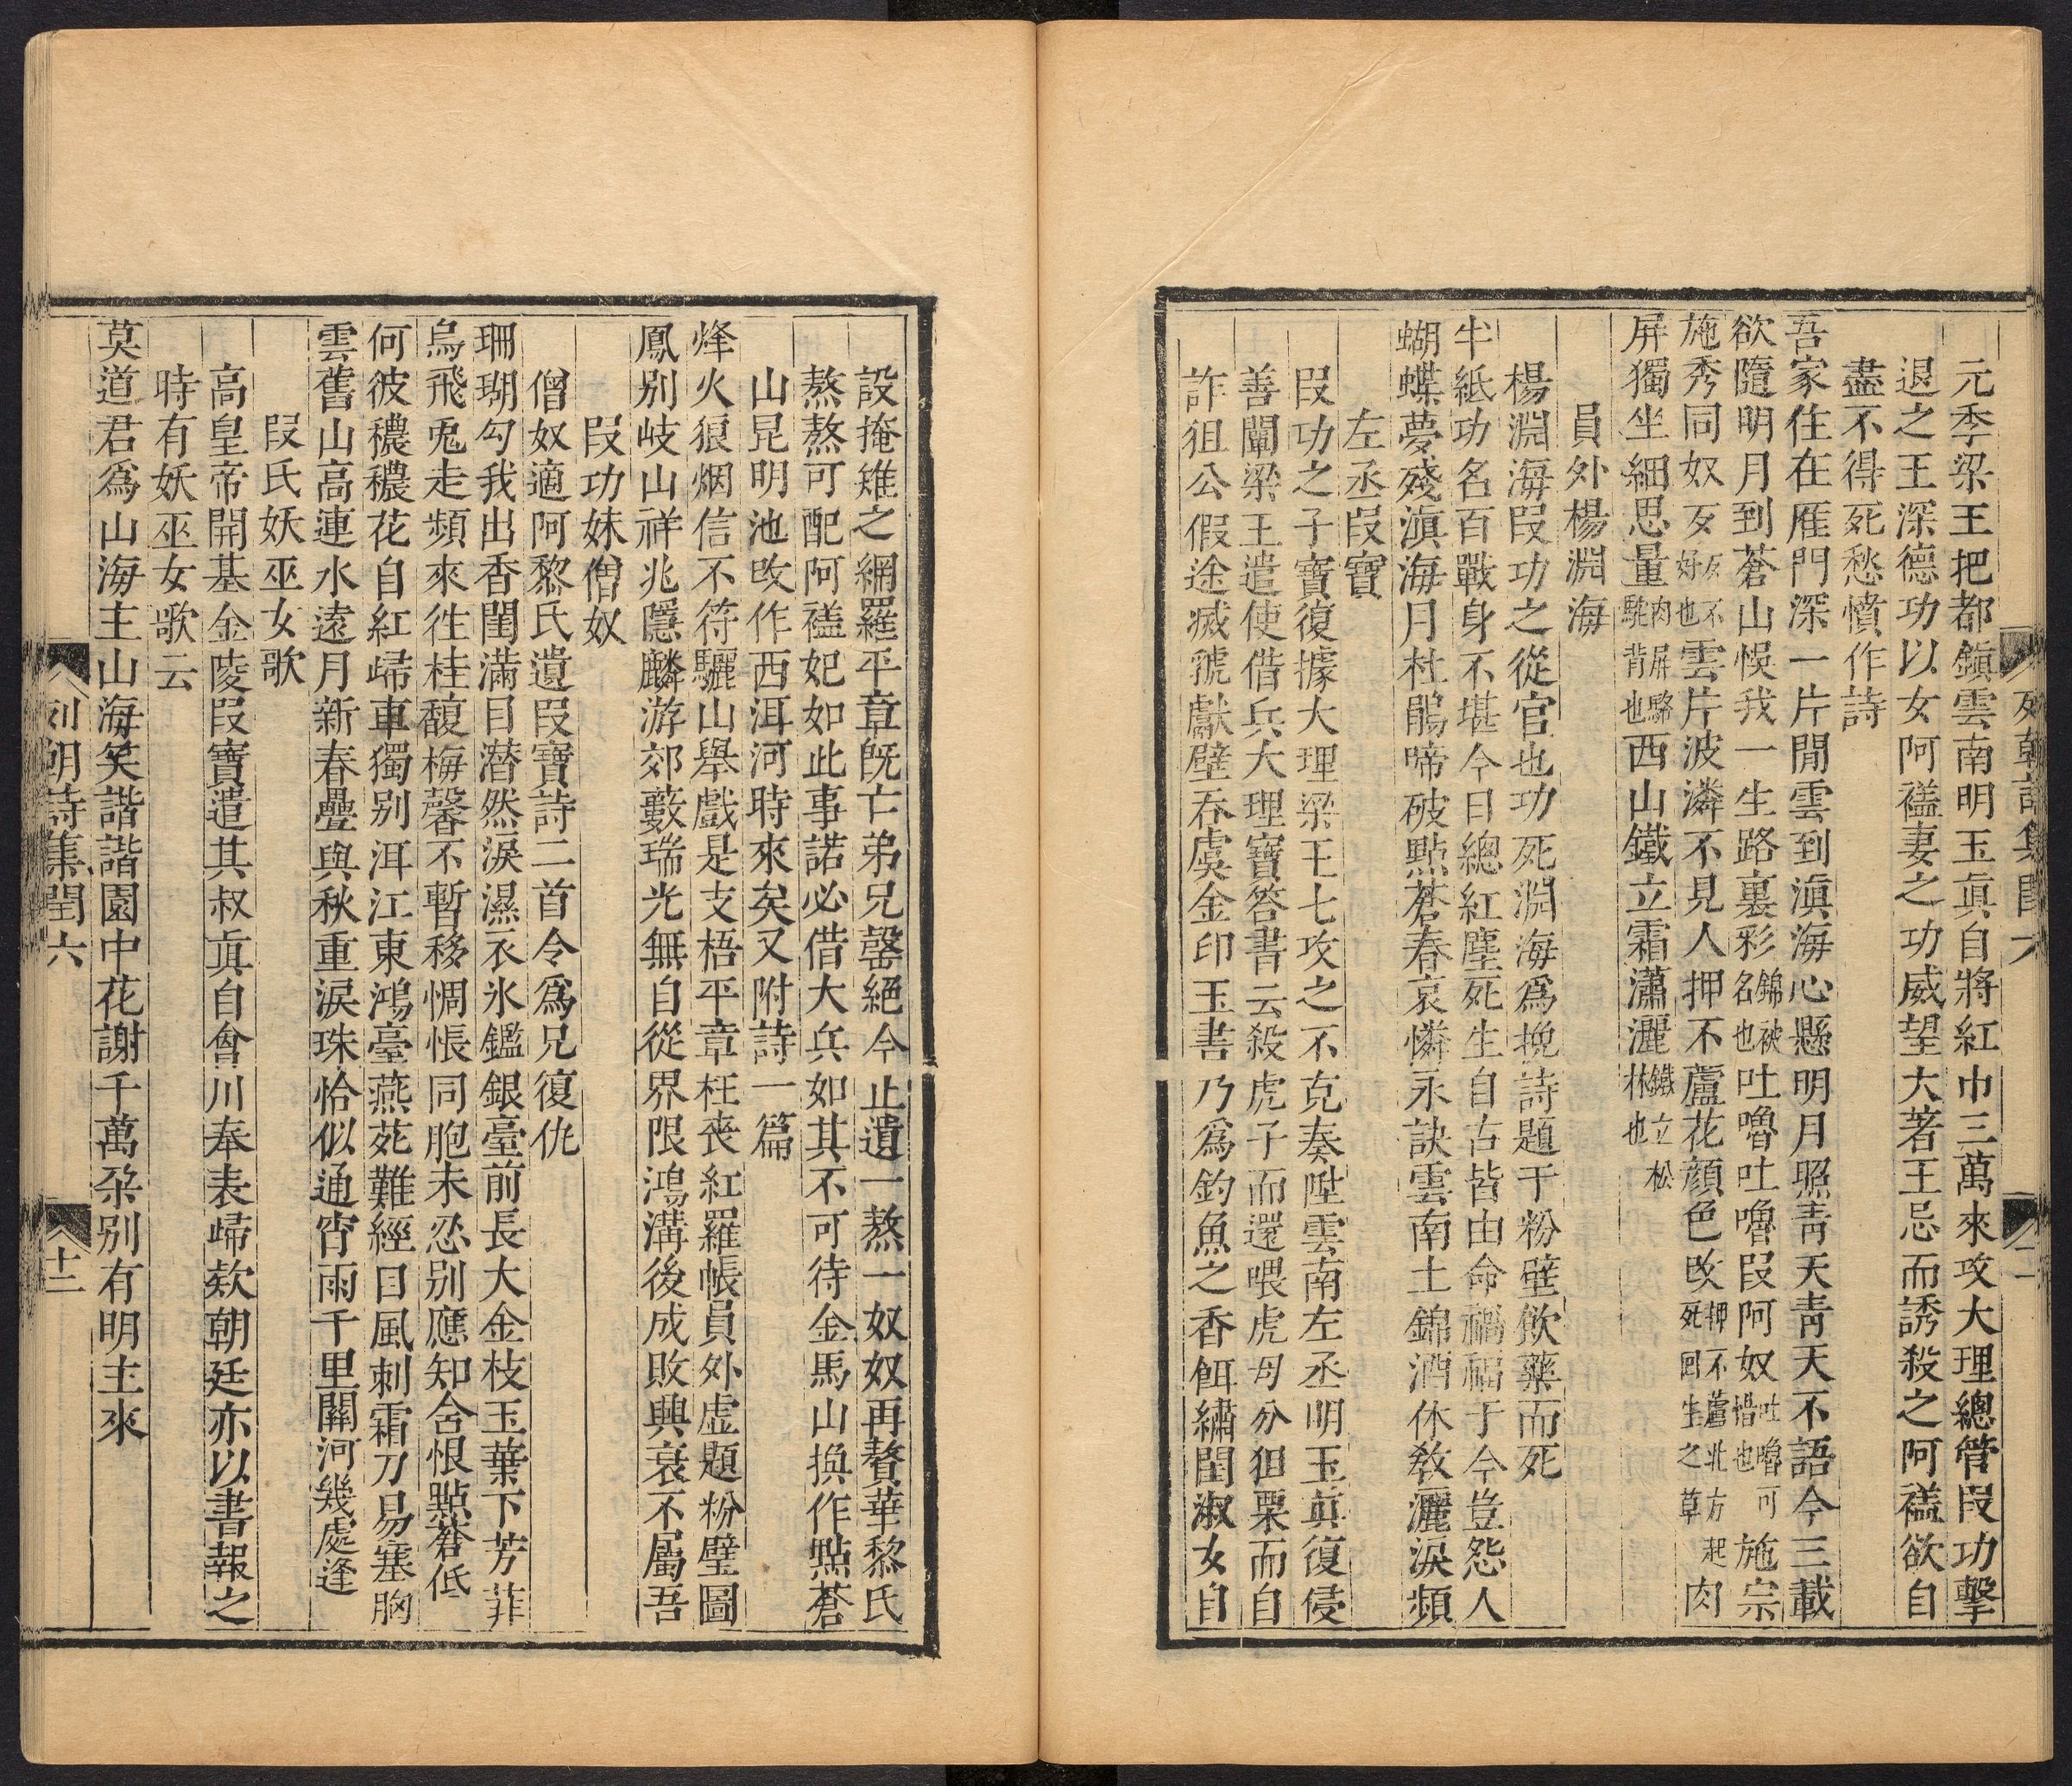 元季梁王把都鎭雲南明玉眞自將紅巾三萬來攻大理總管叚功擊
退之王深德功以女阿𧜗妻之功威望大著王忌而誘殺之阿𧜗欲自
盡不得死愁憤作詩
吾家住在雁門深一片閒雲到滇海心懸明月照靑天靑天不語今三載
欲隨明月到蒼山悞我一生路裏彩錦被名也吐嚕吐嚕叚阿奴吐嚕可惜也施宗
施秀同奴歹歹不好也雲片波潾不見人押不蘆花顔色改押不蘆北方起死回生之草肉
屏獨坐細思量肉屏駱駝背也西山鐵立霜瀟灑鐵立松林也
員外楊淵海
楊淵海叚功之從官也功死淵海爲挽詩題于粉壁飲藥而死
半紙功名百戰身不堪今日總紅塵死生自古皆由命禍福于今豈怨人
蝴蝶夢殘滇海月杜鵑啼破點蒼春哀憐永訣雲南土錦酒休敎灑淚頻
左丞叚寶
叚功之子寶復據大理梁王七攻之不克奏陞雲南左丞明玉眞復侵
善闡梁王遣使借兵大理寶答書云殺虎子而還喂虎母分狙栗而自
詐狙公假途滅虢獻壁吞虞金印玉書乃爲釣魚之香餌繡閨淑女自
設掩雉之網羅平章旣亡弟兄罄絕今止遺一熬一奴奴再贅華黎氏
熬熬可配阿𧜗妃如此事諾必借大兵如其不可待金馬山換作點蒼
山昆明池改作西洱河時來矣又附詩一篇
烽火狼烟信不符驪山舉戲是支梧平章枉丧紅羅帳員外虛題粉壁圖
鳳別岐山祥兆隱麟游郊藪瑞光無自從界限鴻溝後成敗興衰不屬吾
叚功妹僧奴
僧奴適阿黎氏遺叚寶詩二首令爲兄復仇
珊瑚勾我出香閨滿目潸然淚濕衣氷鑑銀臺前長大金枝玉葉下芳菲
烏飛兎走頻來徃桂馥梅馨不暫移惆悵同胞未忍別應知含恨點蒼低
何彼穠穠花自紅歸車獨別洱江東鴻臺燕苑難經目風刺霜刀易塞胸
雲舊山高連水遠月新春疊與秋重淚珠恰似通宵雨千里關河幾處逢
叚氏妖巫女歌
高皇帝開基金陵叚寶遣其叔眞自會川奉表歸欵朝廷亦以書報之
時有妖巫女歌云
莫道君爲山海主山海笑諧諧園中花謝千萬朶別有明主來
列朝詩集閏六
十二